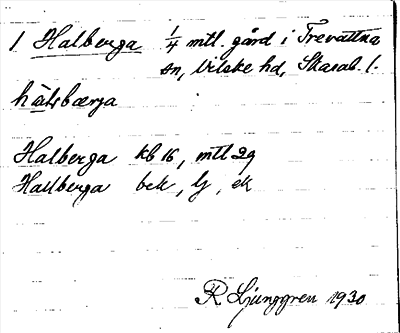 1 Halberga 1/4 mtl. gård i Trevattna
sn, Vilske hd, Skarab. l.
Halberga kb 16, mtl 29
Hallberga bek, lj, ek
R Ljunggren 1930